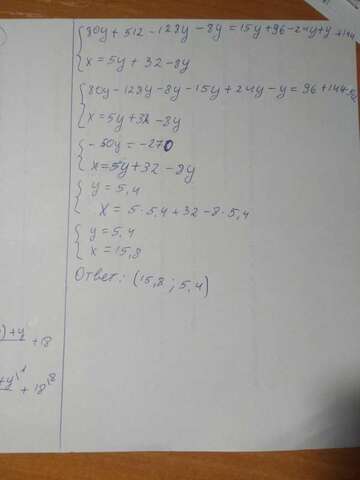 80y + 512 - 128y - 8y = 15y + 96 - 24y + y + 144
x = 5y + 32 - 8y
80y - 128y - 8y - 15y + 24y - y = 96 + 144 -
x = 5y + 32 - 8y
- 50y = - 270
x = 5y + 32 - 8y
y = 5,4
x = 5 · 5,4 + 32 - 8 · 5,4
y = 5,4
x = 15,8
Ответ: (15,8 ; 5,4)
) + y
+ 18
+ y \
+ 18 \8